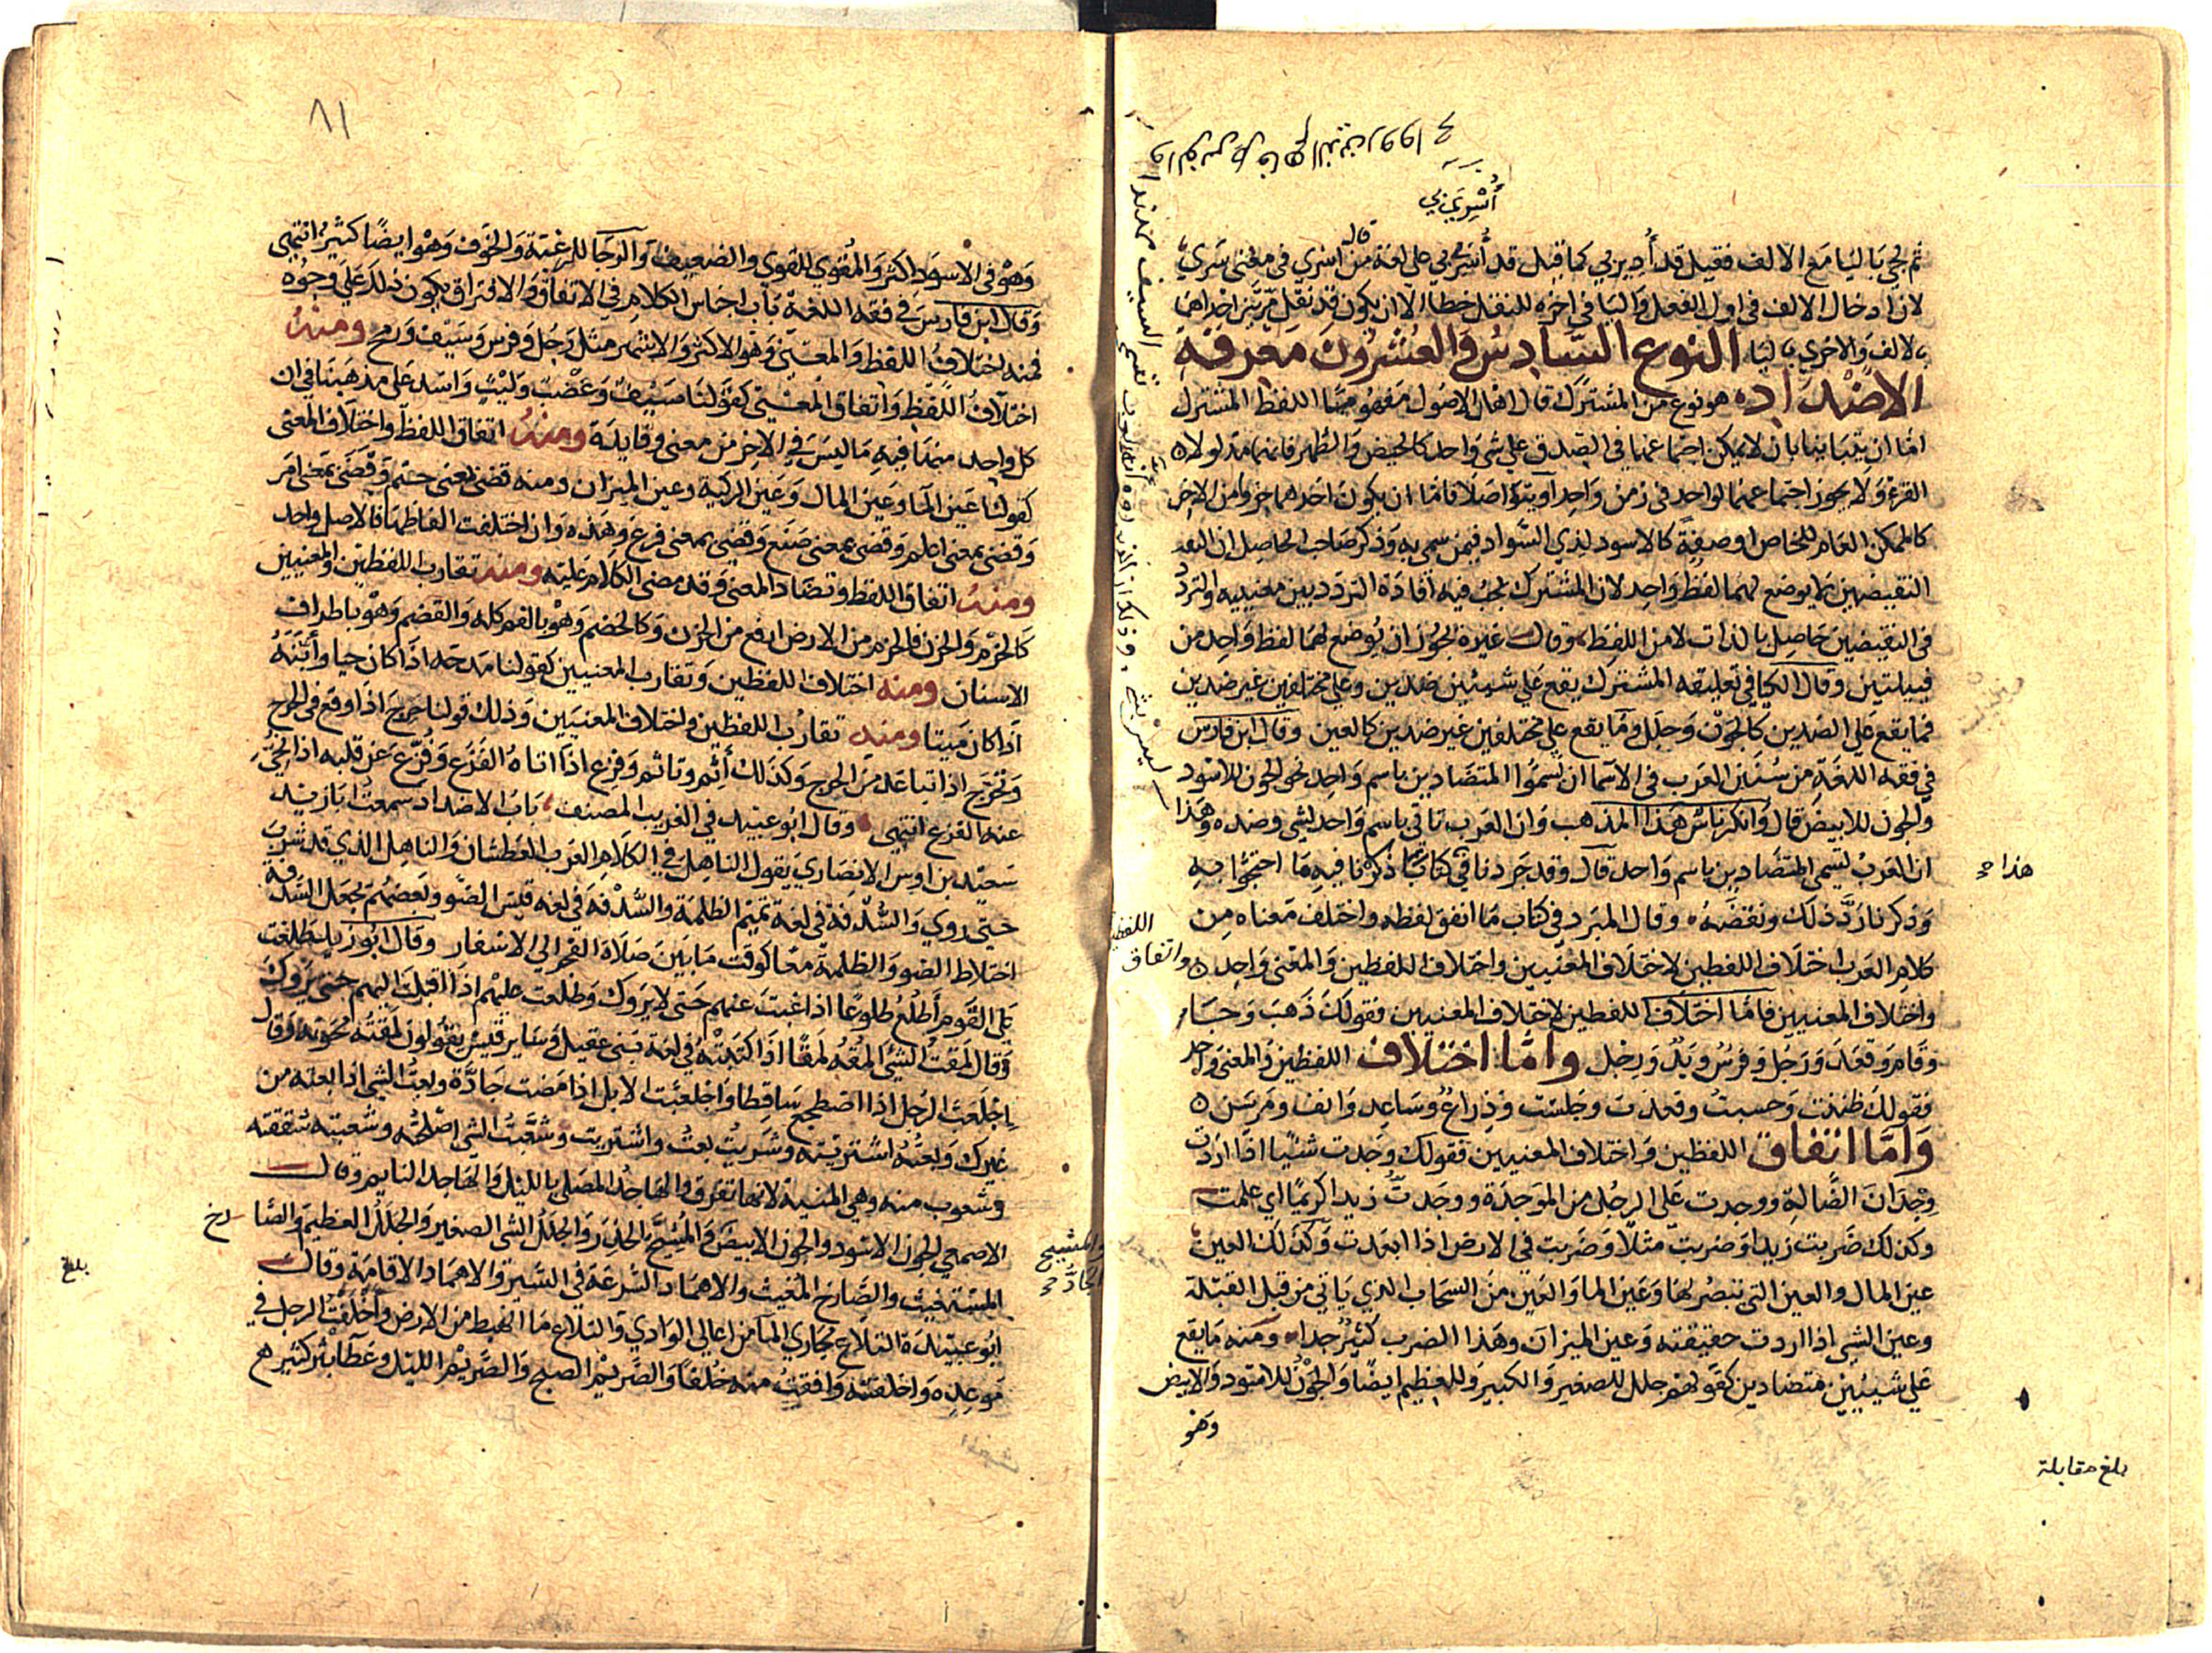 أُسْرِيَ بي
ثم يجي باليا مع الالف فقيل قد أُدير بي كما قيل قد أُسْرِيَ بي على لغة من قال اسري في معنى سَرَي
لان ادخال الالف في اول الفعل واليا في اخره للنقل خطا الا ان يكون قد نقل مرتين احداهما
بالالف والاخري باليا النوع السادس والعشرون معرفة
الاضداد ه هو نوع من المشترك قال اهل الاصول مفهوما اللفظ المشترك
اما ان يتباينا بان لا يمكن اجتماعهما في الصدق على شي واحد كالحيض والطهر فانهما مدلولا ه
القرء ولا يجوز اجتماعهما لواحد في زمن واحد او يتواصلا فاما ان يكون احدهما جزوا من الاخر
كالممكن العام للخاص او صفة كالاسود لذي السواد فيمن سمي به وذكر صاحب الحاصل ان
النقيضين لا يوضع لهما لفظ واحد لان المشترك يجب فيه افادة التردد بين معنييه والتردد
في النقيضين حاصل بالذات لا من اللفظ وقال غيره يجوز ان يوضع لهما لفظ واحد من
قبيلتين وقال الكيا في تعليقه المشترك يقع على شيئين ضدين وعلى مختلفين غير ضدين
فما يقع على الضدين كالجون وجلل وما يقع على مختلفين غير ضدين كالعين وقال ابن فارس
في فقه اللغة من سنن العرب في الاسما ان يسموا المتضادين باسم واحد نحو الجون للاسود
والجون للابيض قال وانكر ناس هذا المذهب وان العرب تاتي باسم واحد لشي وضده وهذا
ان العرب تسمي المتضادين باسم واحد قال وقد جردنا في هذا كتابا ذكرنا فيه ما احتجوا به
هذا
وذكرنا رد ذلك ونقضه ه وقال المبرد في كتاب ما اتفق لفظه واختلف معناه من
كلام العرب اختلاف اللفظين لاختلاف المعنيين واختلاف اللفظين والمعنى واحد ه واتفاق
اللفظين
واختلاف المعنيين فاما اختلاف اللفظين لاختلاف المعنيين فقولك ذهب وجا
وقام وقعد ورجل وفرس ويد ورجل واما اختلاف اللفظين والمعنى واحد
فقولك ظننت وحسبت وقعدت وجلست وذراع وساعد وانف ومرسن ه
واما اتفاق اللفظين واختلاف المعنيين فقولك وجدت شيئا اذا اردت
وجدان الضالة ووجدت على الرجل من الموجدة ووجدت زيدا كريما اي علمت
وكذلك ضربت زيدا وضربت مثلا وضربت في الارض اذا ابعدت وكذلك العين
عين المال والعين التي تبصر بها وعين الما والعين من السحاب الذي ياتي من قبل القبلة
وعين الشي اذا اردت حقيقته وعين الميزان وهذا الضرب كثير جدا ه ومنه ما يقع
على شيئين متضادين كقولهم جلل للصغير والكبير وللعظيم ايضا والجون للاسود والابيض
وهو
بلغ مقابلة
٨١
وهو في الاسود اكثر والمقوي للقوي والضعيف والرجا للرغبة والخوف وهو ايضا كثير انتهى
وقال ابن فارس في فقه اللغة باب اجناس الكلام في الاتفاق والافتراق يكون ذلك على وجوه
فمنه اختلاف اللفظ والمعنى وهو الاكثر والاشهر مثل رجل وفرس وسيف ورمح ومنه
اختلاف اللفظ واتفاق المعنى كقولنا سيف وعضب وليث واسد على مذهبنا في ان
كل واحد منهما فيه ما ليس في الاخر من معنى وفايدة ومنه اتفاق اللفظ واختلاف المعنى
كقولنا عين الما وعين المال وعين الركية وعين الميزان ومنه قضى بمعنى حتم وقضى بمعنى امر
وقضى بمعنى اعلم وقضى بمعنى صنع وقضى بمعنى فرغ وهذه وان اختلفت الفاظها فالاصل واحد
ومنه اتفاق اللفظ وتضاد المعنى وقد مضى الكلام عليه ومنه تقارب اللفظين والمعنيين
كالحزم والحزن فالحزم من الارض ارفع من الحزن وكالخضم وهو بالفم كله والقضم وهو باطراف
الاسنان ومنه اختلاف اللفظين وتقارب المعنيين كقولنا مدحه اذا كان حيا وأبنه
اذا كان ميتا ومنه تقارب اللفظين واختلاف المعنيين وذلك قولنا حرج اذا وقع في الحرج
وتحرج اذا تباعد من الحرج وكذلك أثم وتاثم وفزع اذا اتاه الفزع وفزع عن قلبه اذا نحي
عنه الفزع انتهى وقال ابو عبيد في الغريب المصنف باب الاضداد سمعت ابا زيد
سعيد بن اوس الانصاري يقول الناهل في الكلام العرب العطشان والناهل الذي قد شرب
حتى روي والسدفة في لغة تميم الظلمة والسدفة في لغة قيس الضو وبعضهم يجعل السدفة
اختلاط الضو والظلمة معا كوقت ما بين صلاة الفجر الى الاسفار وقال ابو زيد طلعت
على القوم أطلع طلوعا اذا غبت عنهم حتى لا يروك وطلعت عليهم اذا اقبلت اليهم حتى يروك
وقال لمقت الشي المقه لمقا اذا كتبته في لغة بني عقيل وساير قيس يقولون لمقته محوته وقال
اجلعب الرجل اذا اضطجع ساقطا واجلعبت الابل اذا مضت جادة وبعت الشي اذا بعته من
غيرك وبعته اشتريته وشريت بعت واشتريت وشعبت الشي اصلحته وشعبته شققته
وشعوب منه وهي المنية لانها تفرق والهاجد المصلي بالليل والهاجد النايم وقال
الاصمعي الجون الاسود والجون الابيض والمشيح الحذر والجلل الشي الصغير والجلل العظيم والصا رخ
والمشيح
الجاد
المستغيث والصارخ المغيث والاهماد السرعة في السير والاهماد الاقامة وقال
بلغ
ابو عبيدة التلاع مجاري الما من اعالي الوادي والتلاع ما انهبط من الارض وأخلفت الرجل في
موعده واخلفته وافقت منه خلفا والصريم الصبح والصريم الليل وعطا بثر كثير